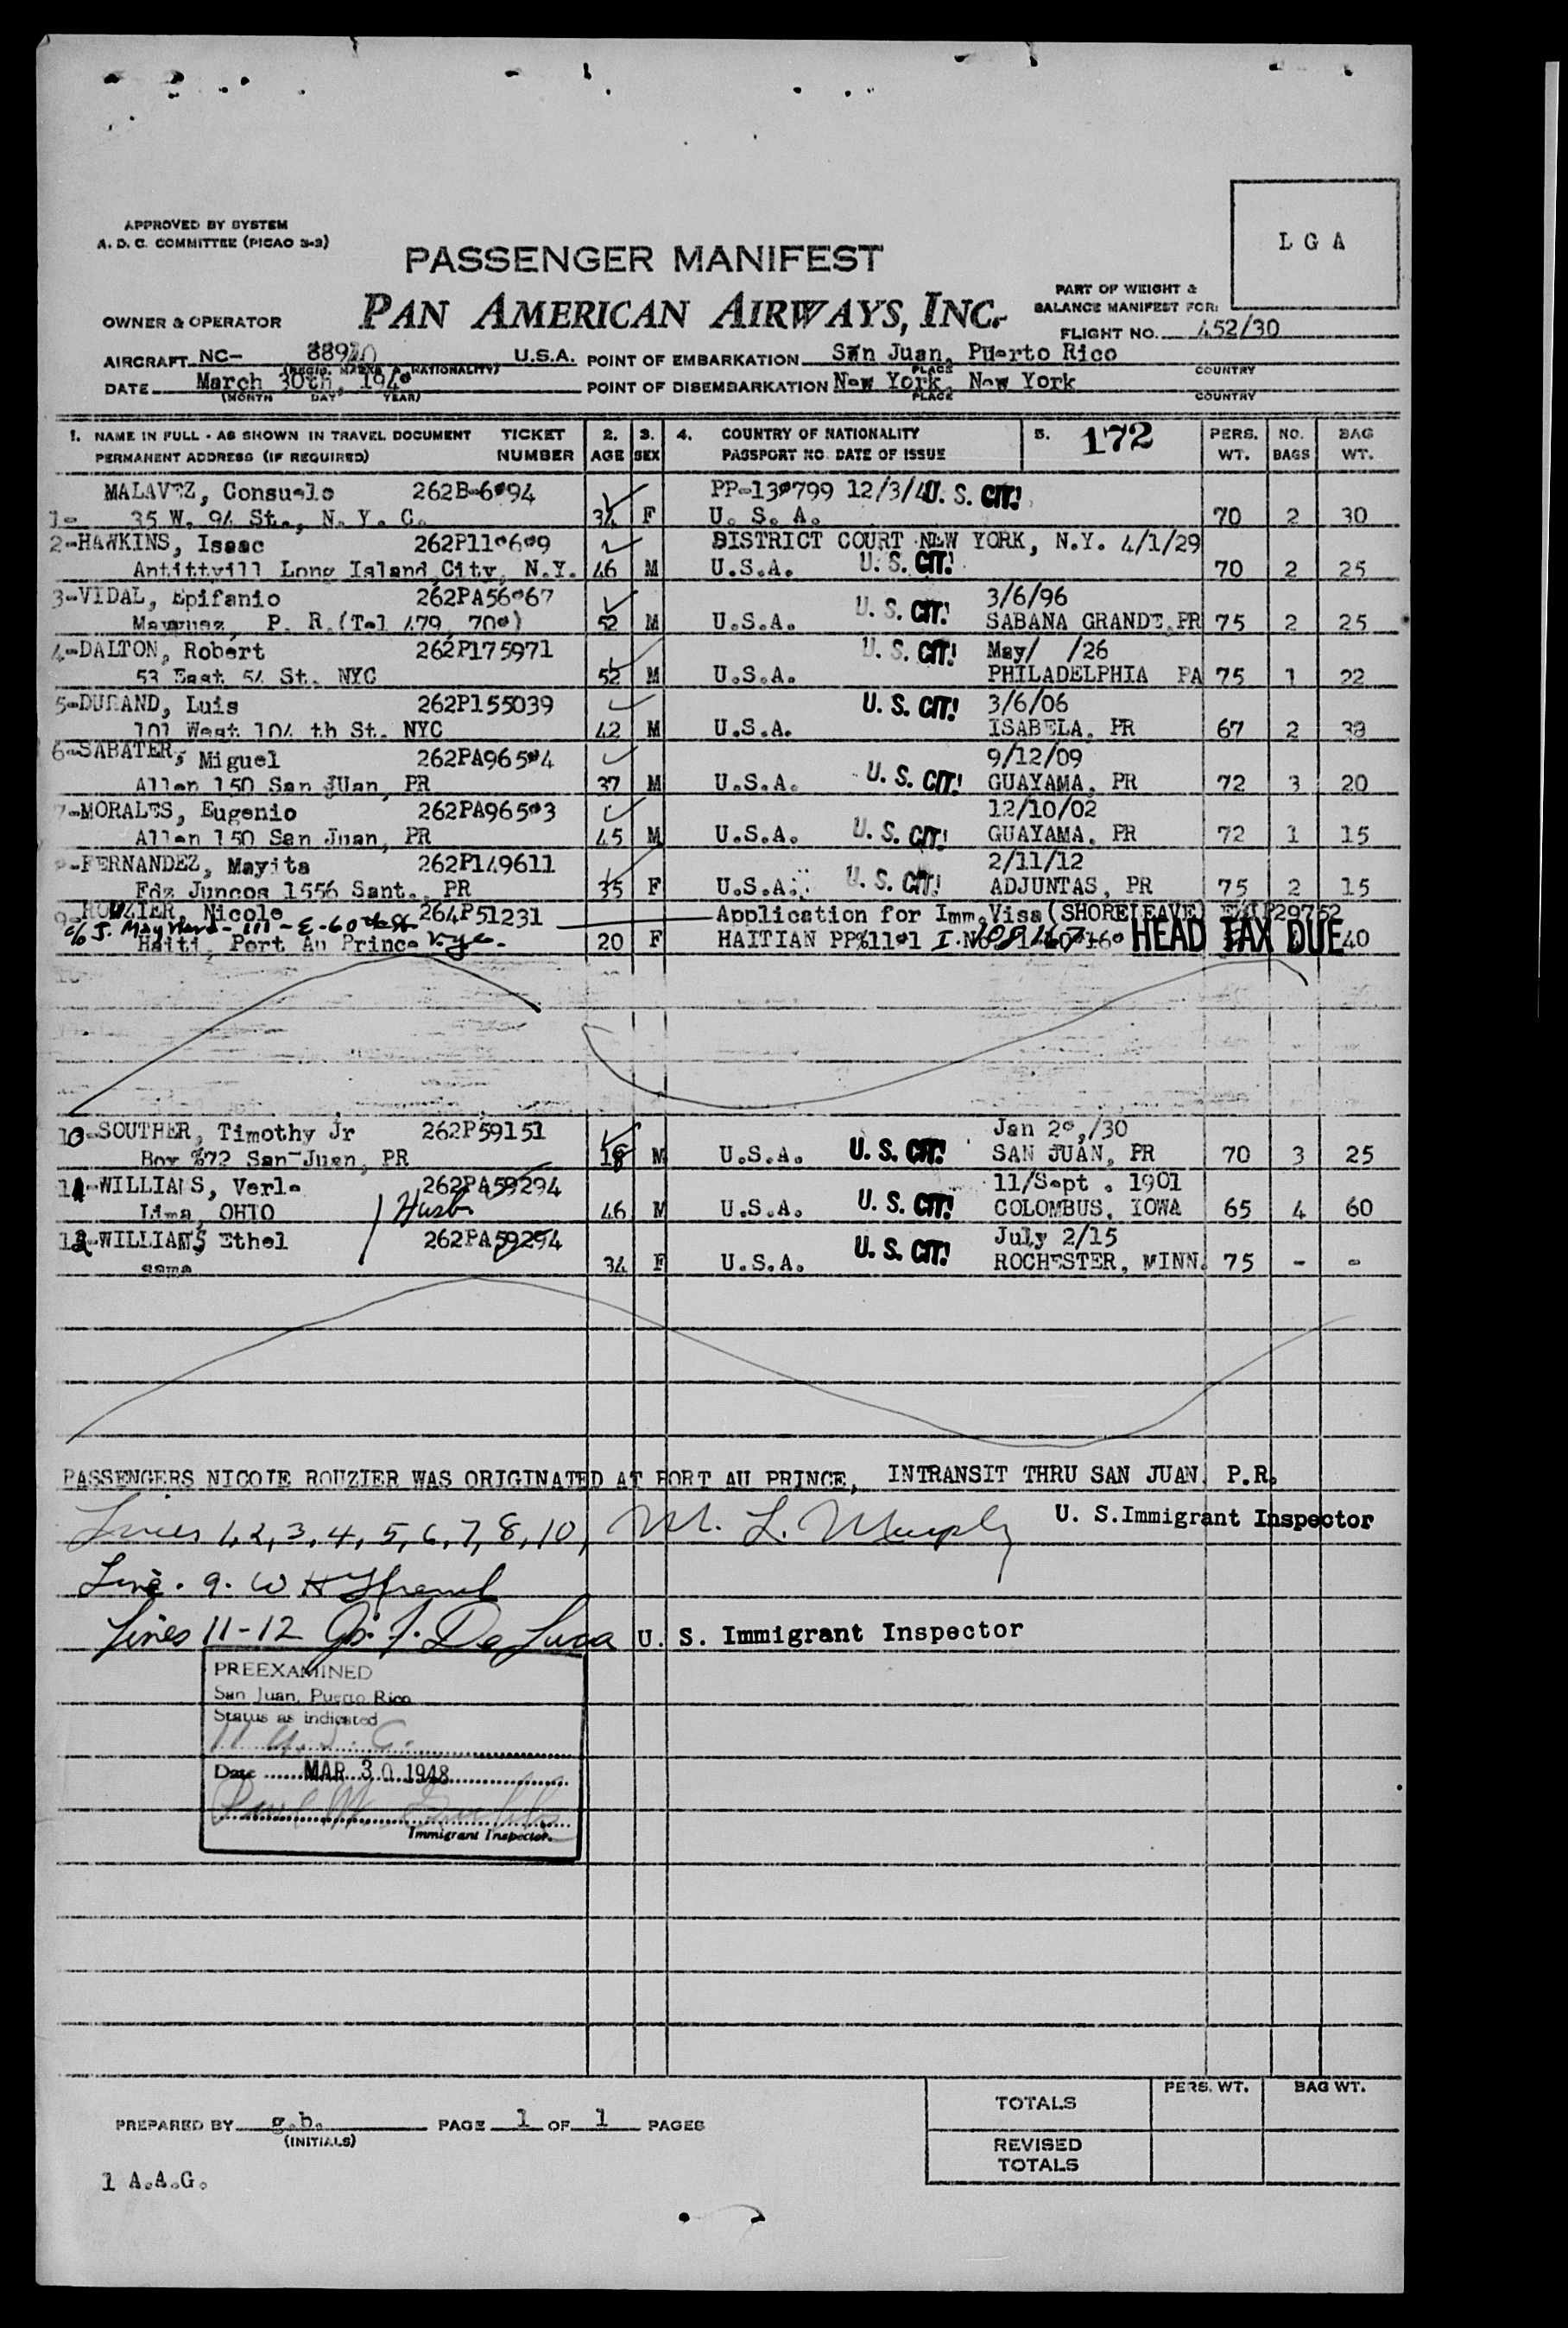 APPROVED BY SYSTEM
A. D. C. COMMITTEE (PICAO 3-3)
L G A
PASSENGER MANIFEST
PAN AMERICAN AIRWAYS, INC.
PART OF WEIGHT &
BALANCE MANIFEST FOR:
OWNER & OPERATOR
FLIGHT NO. 452/30
AIRCRAFT NC- U.S.A. POINT OF EMBARKATION San Juan, Puerto Rico
(REGIS. MARKS & NATIONALITY) PLACE COUNTRY
DATE March 30th, POINT OF DISEMBARKATION New York, New York
(MONTH DAY YEAR) PLACE COUNTRY
1. NAME IN FULL - AS SHOWN IN TRAVEL DOCUMENT TICKET 2. 3. 4. COUNTRY OF NATIONALITY 5. 172 PERS. NO. BAG
PERMANENT ADDRESS (IF REQUIRED) NUMBER AGE SEX PASSPORT NO. DATE OF ISSUE WT. BAGS WT.
MALAVEZ, Consuelo 262B-6094 PP-130799 U. S. CIT!
1- 35 W. 94 St., N. Y. C. 34 F U. S. A. 70 2 30
2-HAWKINS, Isaac 262P110609 DISTRICT COURT NEW YORK, N.Y. 4/1/29
Antittvill Long Island City, N.Y. 46 M U.S.A. U. S. CIT! 70 2 25
3-VIDAL, Epifanio 262PA56067 U. S. CIT! 3/6/96
P. R.(Tel 479, 700) 52 M U.S.A. SABANA GRANDE,PR 75 2 25
4-DALTON, Robert 262P175971 U. S. CIT! May/ /26
53 East 54 St. NYC 52 M U.S.A. PHILADELPHIA PA 75 1 22
5-DURAND, Luis 262P155039 U. S. CIT! 3/6/06
101 West 104 th St. NYC 42 M U.S.A. ISABELA, PR 67 2 38
6-SABATER, Miguel 262PA96504 9/12/09
Allen 150 San JUan, PR 37 M U.S.A. U. S. CIT! GUAYAMA, PR 72 3 20
7-MORALES, Eugenio 262PA96503 12/10/02
Allen 150 San Juan, PR 45 M U.S.A. U. S. CIT! GUAYAMA, PR 72 1 15
-FERNANDEZ, Mayita 262P149611 2/11/12
Fdz Juncos 1556 Sant., PR 35 F U.S.A. U. S. CIT! ADJUNTAS, PR 75 2 15
9-ROUZIER, Nicole 264P51231 Application for Imm.Visa (SHORELEAVE)
c/o J. Maynard - 111 - E - 60th St
Haiti, Port Au Prince N.Y.C. 20 F HAITIAN HEAD TAX DUE 40
10-SOUTHER, Timothy Jr 262P59151 Jan 20,/30
Box %72 San Juan, PR 18 M U.S.A. U. S. CIT! SAN JUAN, PR 70 3 25
11-WILLIAMS, Verle 262PA59294 11/Sept . 1901
Lima, OHIO Husb 46 M U.S.A. U. S. CIT! COLOMBUS, IOWA 65 4 60
12-WILLIAMS Ethel 262PA59294 July 2/15
same 34 F U.S.A. U. S. CIT! ROCHESTER, MINN. 75 - -
PASSENGERS NICOLE ROUZIER WAS ORIGINATED AT PORT AU PRINCE, INTRANSIT THRU SAN JUAN, P.R.
Lines 1, 2, 3, 4, 5, 6, 7, 8, 10, M. L. Murphy U. S.Immigrant Inspector
Line. 9.
Lines 11-12 De Luca U. S. Immigrant Inspector
PREEXAMINED
San Juan, Puerto Rico
Status as indicated
Date MAR 30 1948
Immigrant Inspector.
PERS. WT. BAG WT.
TOTALS
PREPARED BY g.b. PAGE 1 OF 1 PAGES
(INITIALS)
REVISED
TOTALS
1 A.A.G.